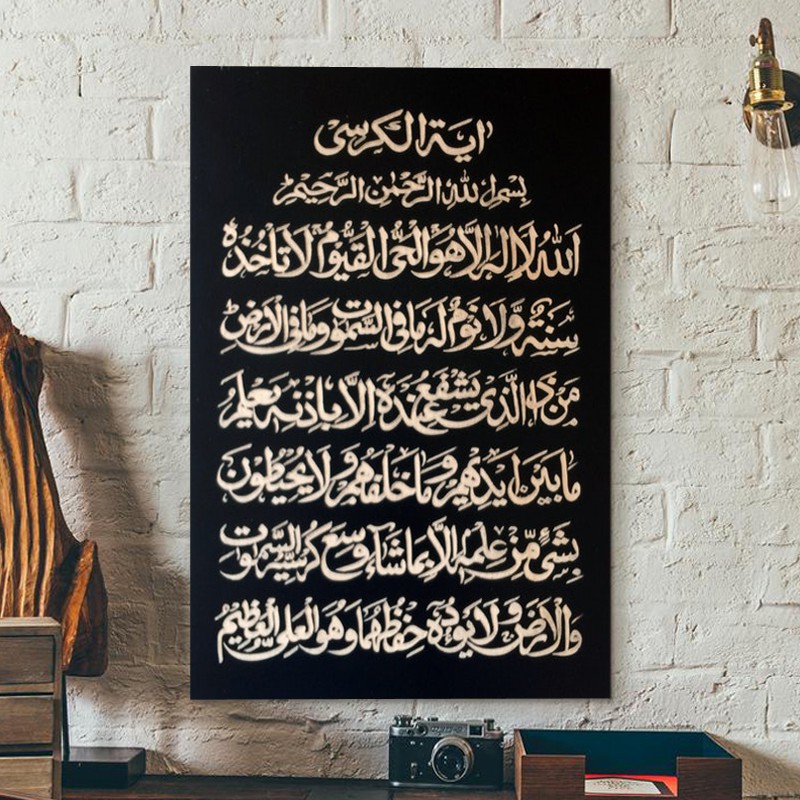 اية الكرسى
بسم الله الرحمن الرحيم
الله لا اله الا هو الحى القيوم لا تأخذه
سنة ولا نوم له ما فى السموت وما فى الارض
من ذا الذى يشفع عنده الا باذنه يعلم
ما بين ايديهم وما خلفهم ولا يحيطون
بشئ من علمه الا بما شاء وسع كرسيه السموت
والارض ولا يوده حفظهما وهو العلى العظيم